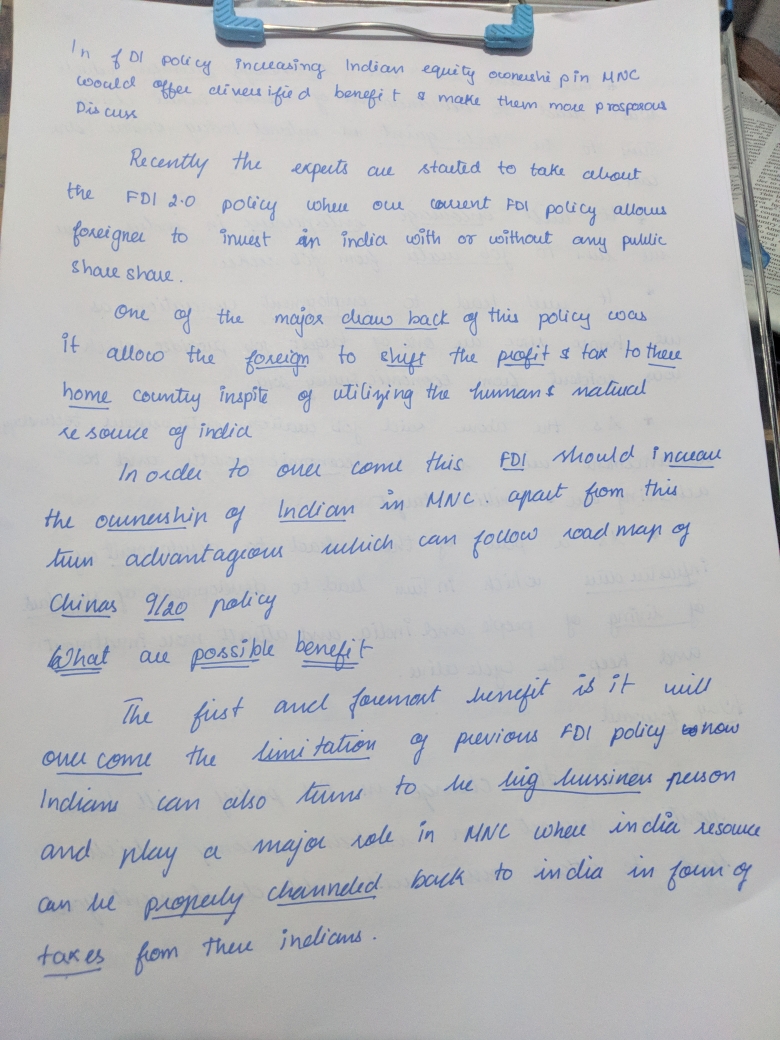 In fDI policy increasing Indian equity ownership in MNC
would offer diversified benefit & make them more prosporous
Discuss
Recently the experts are started to take about
the FDI 2.0 policy where our current FDI policy allows
foreigner to invest in india with or without any public
share share.
One of the major draw back of this policy was
it allow the foreign to shift the profit & tax to there
home country inspite of utilizing the human & natural
resource of india
In order to over come this FDI should increase
the ownership of Indian in MNC. apart from this
turn advantageous which can follow road map of
Chinas 9/20 policy
What are possible benefit
The first and foremost benefit is it will
over come the limitation of previous FDI policy now
Indians can also turns to be big bussiness person
and play a major role in MNC where india resource
can be properly channeled back to india in form of
taxes from there indians.